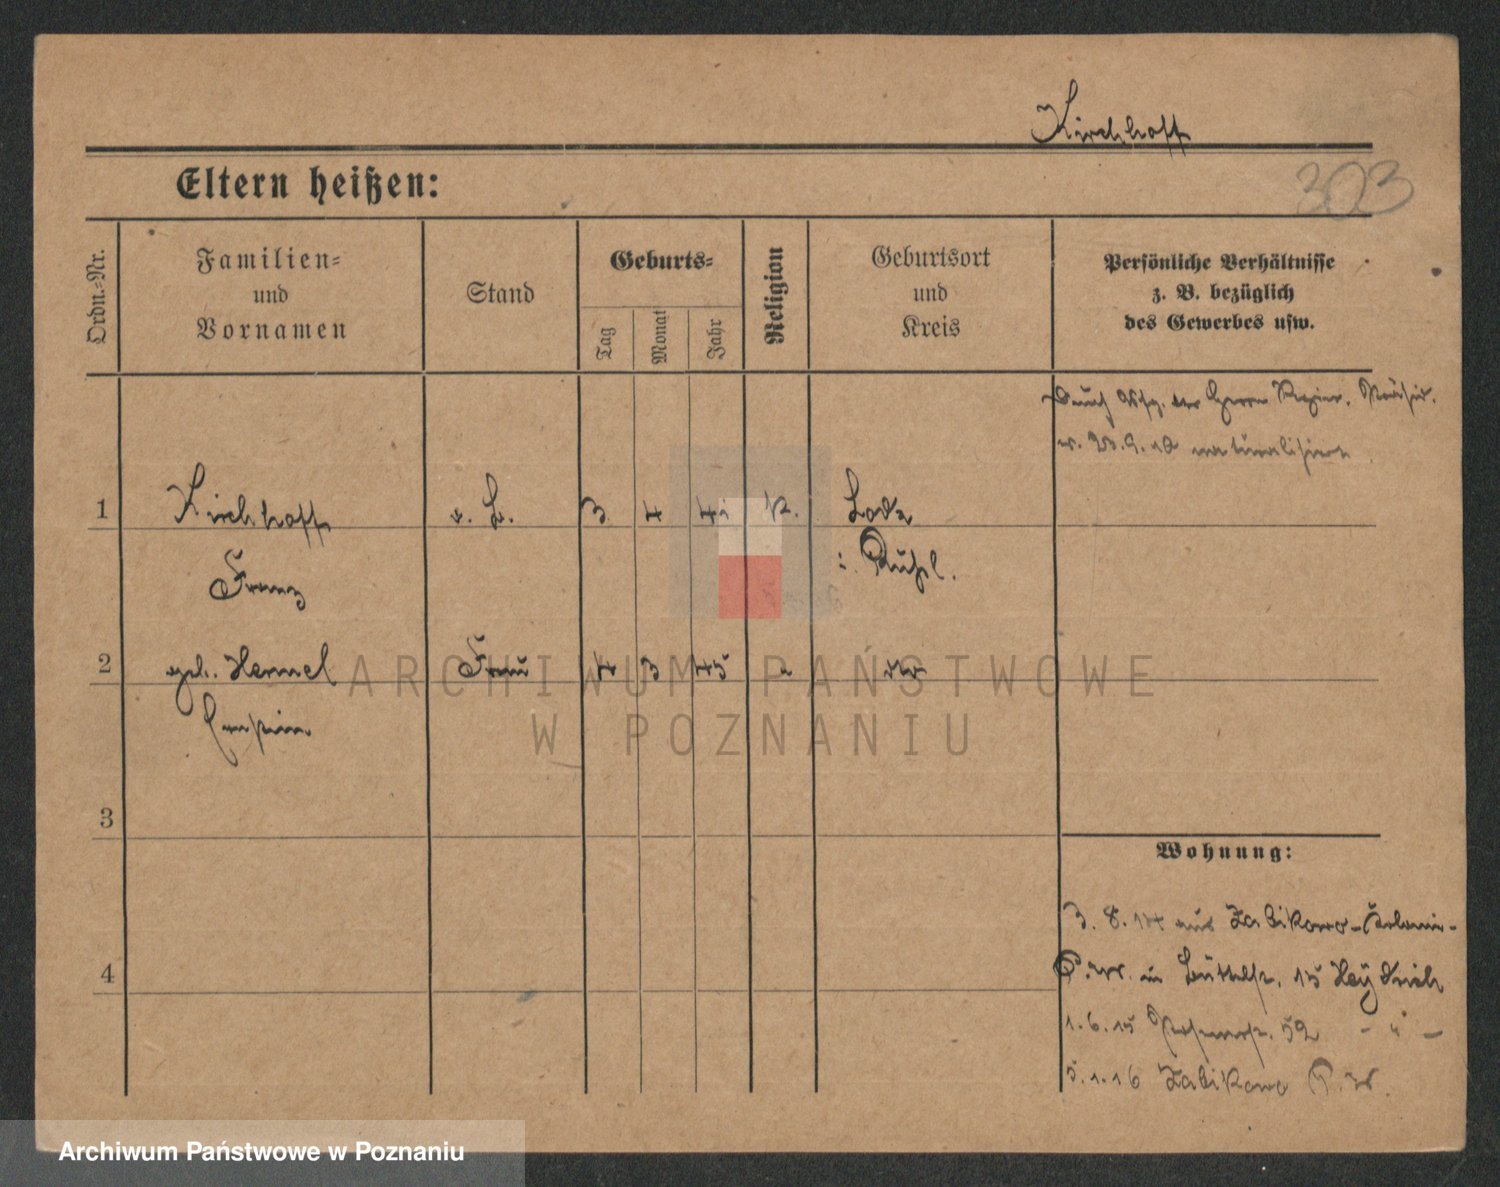 Kirchhoff
303
Eltern heißen:
Ordn.-Nr.
Familien-
und
Vornamen
Stand
Geburts-
Tag
Monat
Jahr
Religion
Geburtsort
und
Kreis
Persönliche Verhältnisse
z. B. bezüglich
des Gewerbes usw.
Durch Vfg. des Herrn Regier. Präsid.
v. naturalisiert
1 Kirchhoff 3 4 K. Lodz
Franz i. Rußl.
2 geb. Hermel Frau 4 3 45
3
Wohnung:
3. 8. 14 aus Zabikowo-Kolonie-
P.W. in 15 Heydrich
4
1. 6. 15 52 - " -
5. 1. 16 Zabikowo P. W.
ARCHIWUM PAŃSTWOWE
W POZNANIU
Archiwum Państwowe w Poznaniu